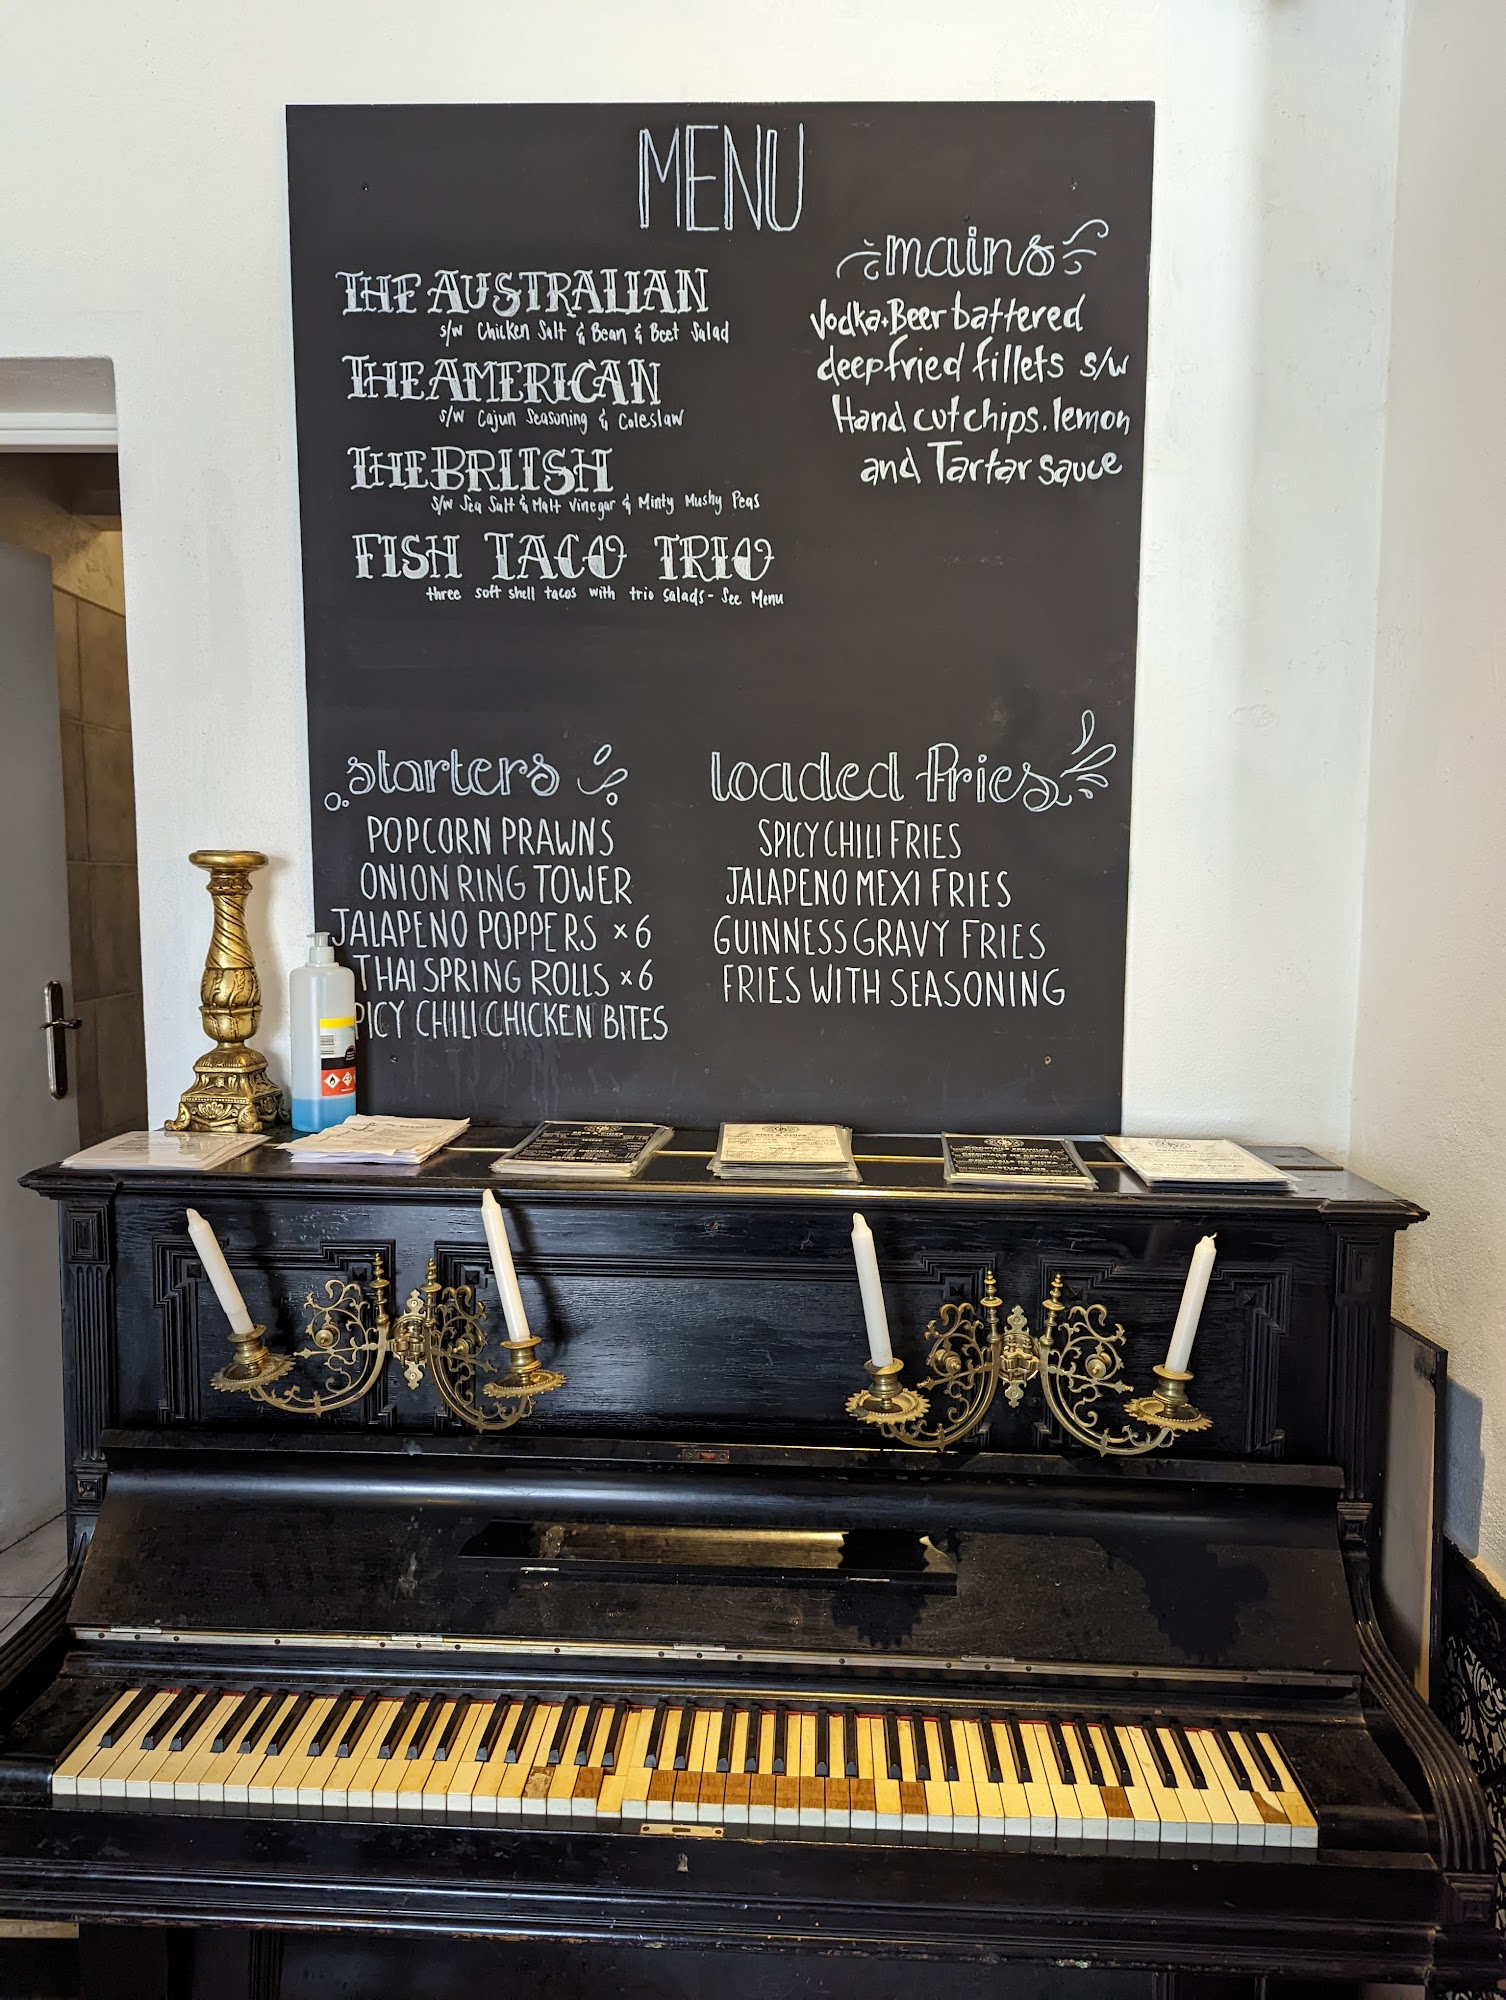 MENU
THE AUSTRALIAN
s/w Chicken Salt & Bean & Beet Salad
THE AMERICAN
s/w Cajun Seasoning & Coleslaw
THE BRITISH
s/w Sea Salt & Malt Vinegar & Minty Mushy Peas
FISH TACO TRIO
three soft shell tacos with trio salads - See Menu
mains
Vodka+Beer battered
deepfried fillets s/w
Hand cut chips. lemon
and Tartar sauce
starters
POPCORN PRAWNS
ONION RING TOWER
JALAPENO POPPERS x6
THAI SPRING ROLLS x6
PICY CHILI CHICKEN BITES
loaded fries
SPICY CHILI FRIES
JALAPENO MEXI FRIES
GUINNESS GRAVY FRIES
FRIES WITH SEASONING
BEER & CIDER
WINE
FISH & CIDER
TACOS